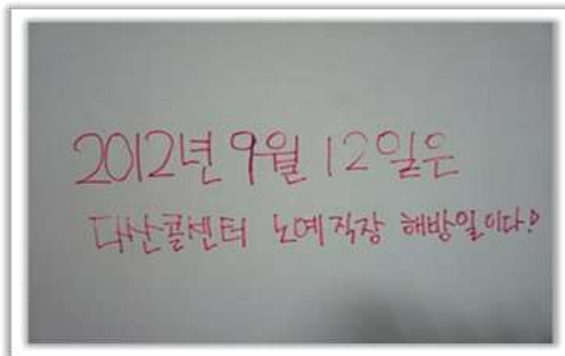 2012년 9월 12일은
다산콜센터 노예직장 해방일이다!